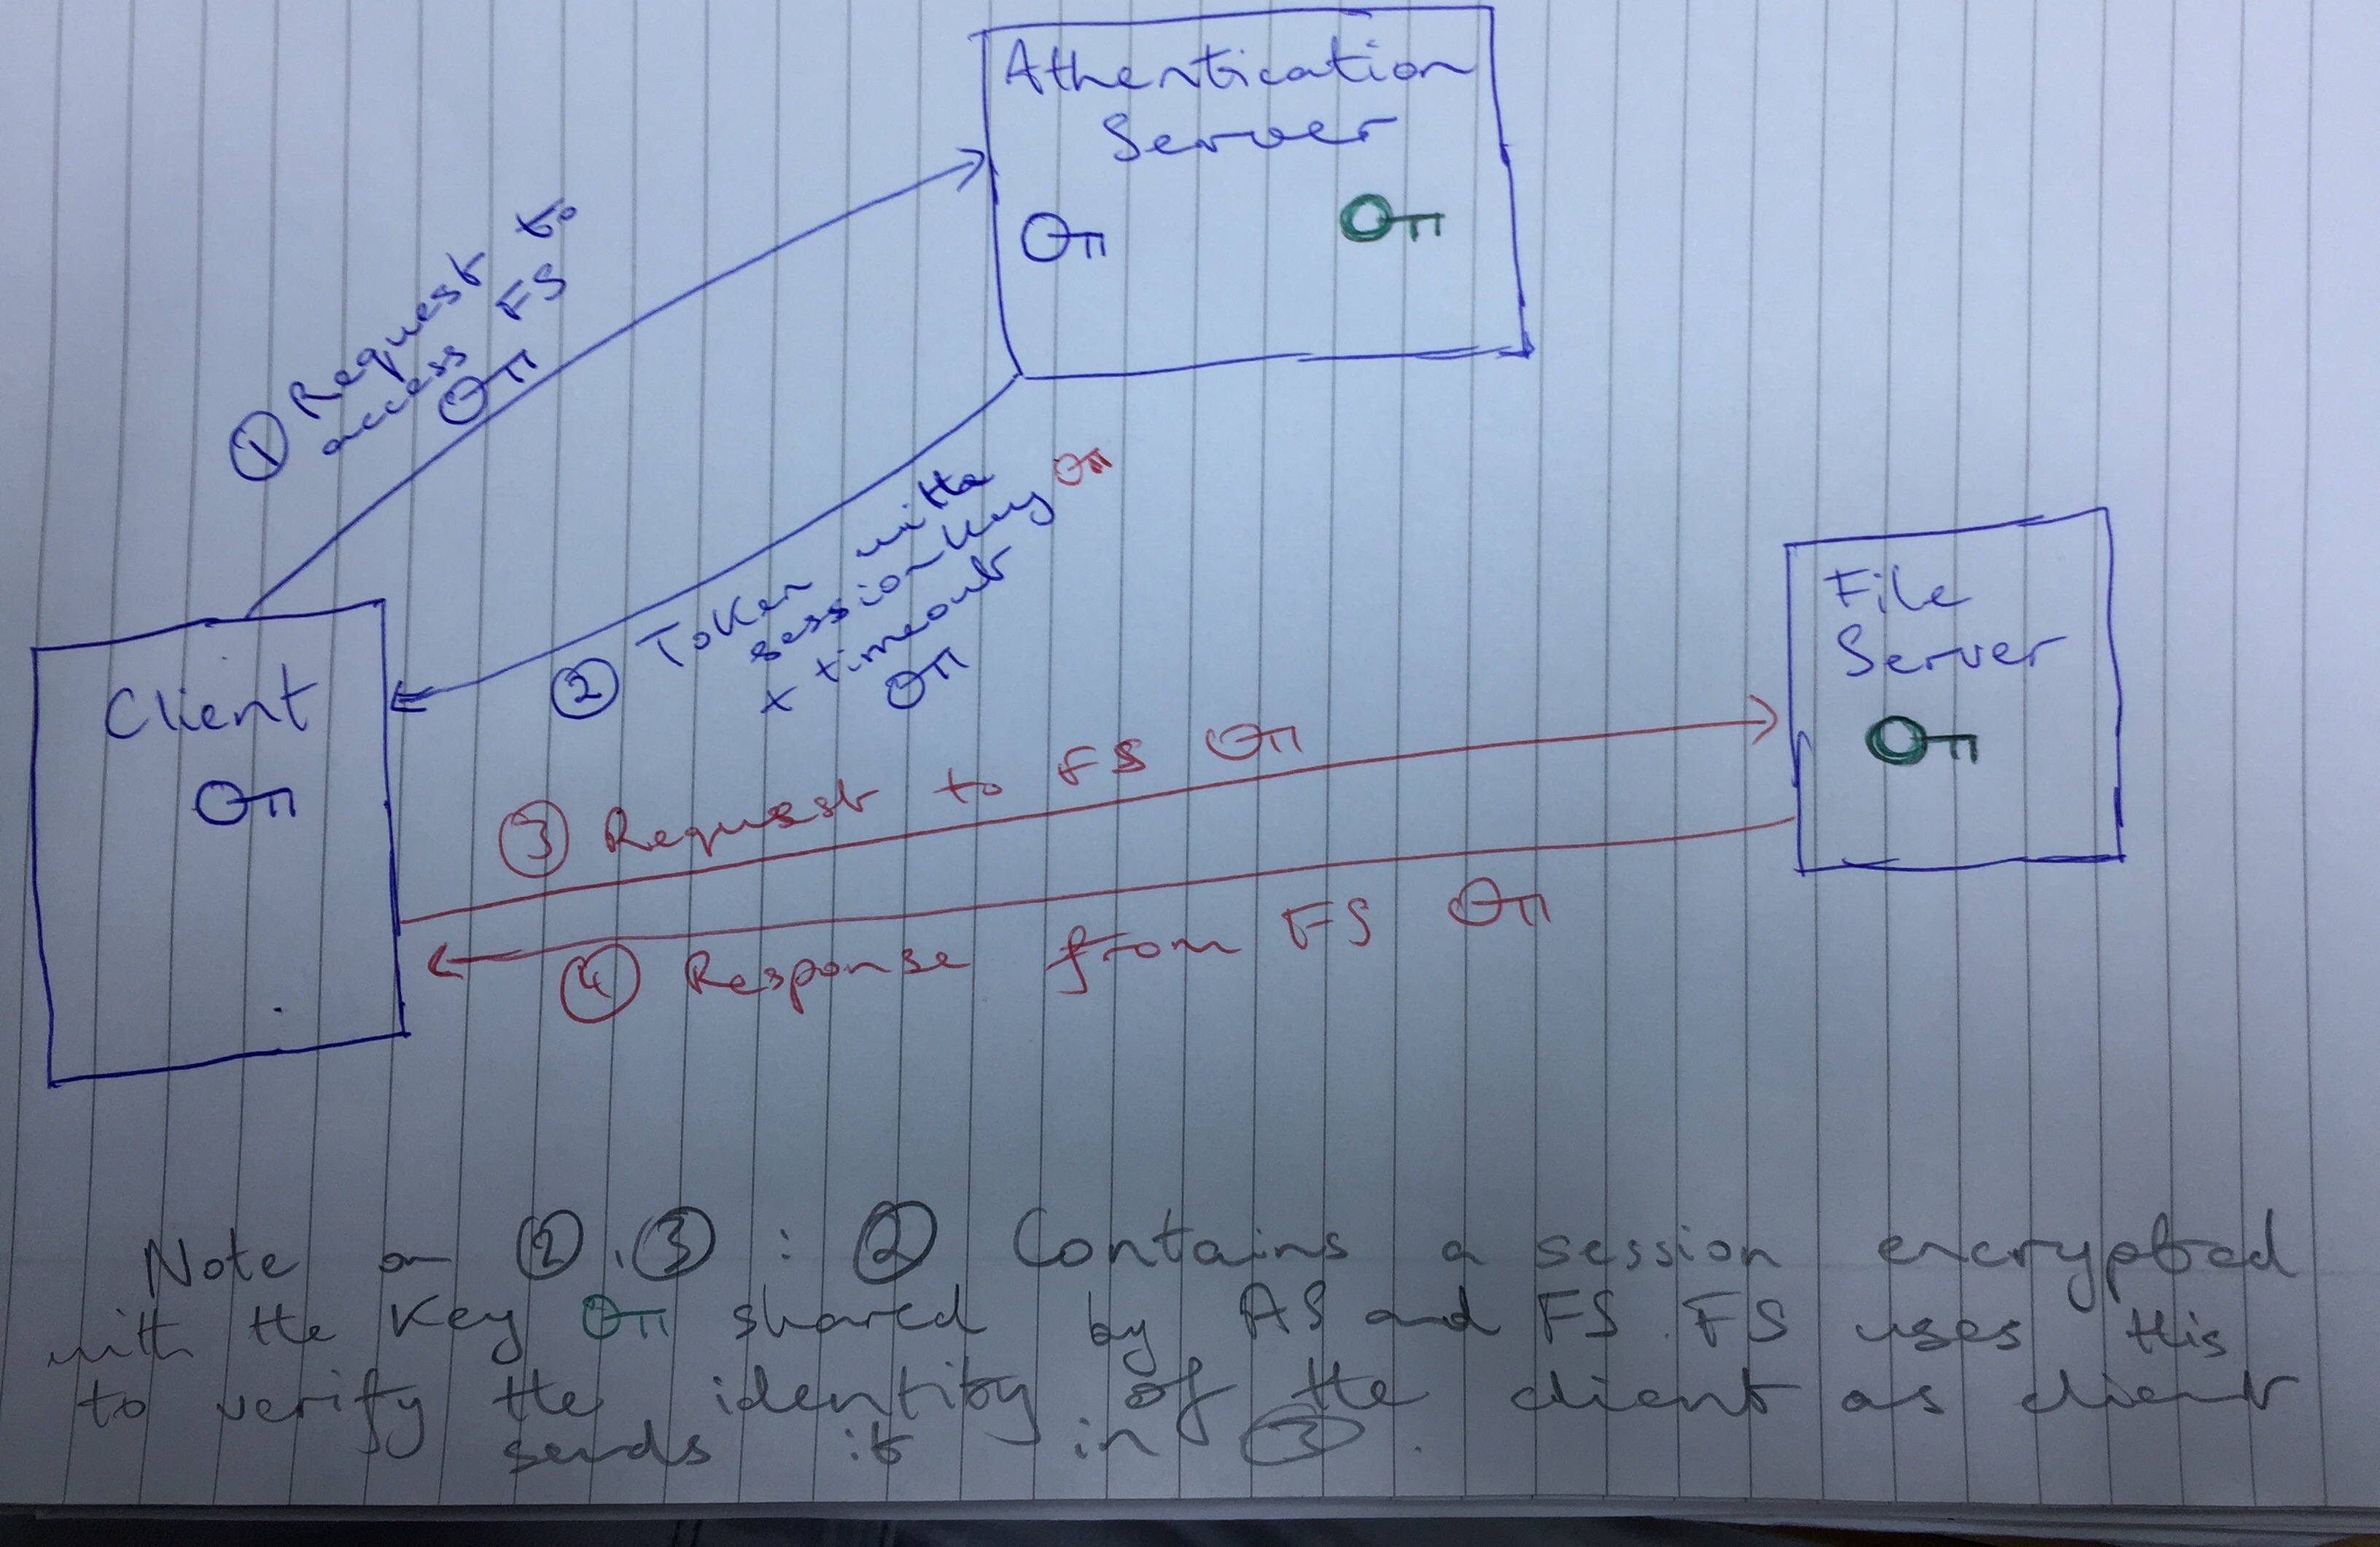 Athentication
Server
① Request to
access FS
② Token with
session key
+ timeout
Client
File
Server
③ Request to FS
④ Response from FS
Note on ②,③ : ② Contains a session encrypted
with the key shared by AS and FS. FS uses this
to verify the identity of the client as client
sends it in ③.